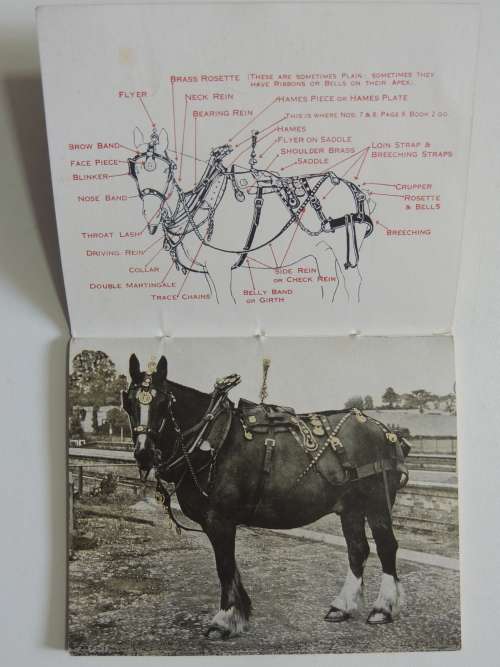 BRASS ROSETTE (THESE ARE SOMETIMES PLAIN; SOMETIMES THEY
HAVE RIBBONS OR BELLS ON THEIR APEX).
FLYER
NECK REIN
HAMES PIECE OR HAMES PLATE
BEARING REIN
THIS IS WHERE NOS. 7 & 8, PAGE 9, BOOK 2 GO
HAMES
FLYER ON SADDLE
BROW BAND
SHOULDER BRASS
LOIN STRAP &
BREECHING STRAPS
FACE PIECE
SADDLE
BLINKER
CRUPPER
NOSE BAND
ROSETTE
& BELLS
THROAT LASH
BREECHING
DRIVING REIN
COLLAR
SIDE REIN
OR CHECK REIN
DOUBLE MARTINGALE
BELLY BAND
OR GIRTH
TRACE CHAINS